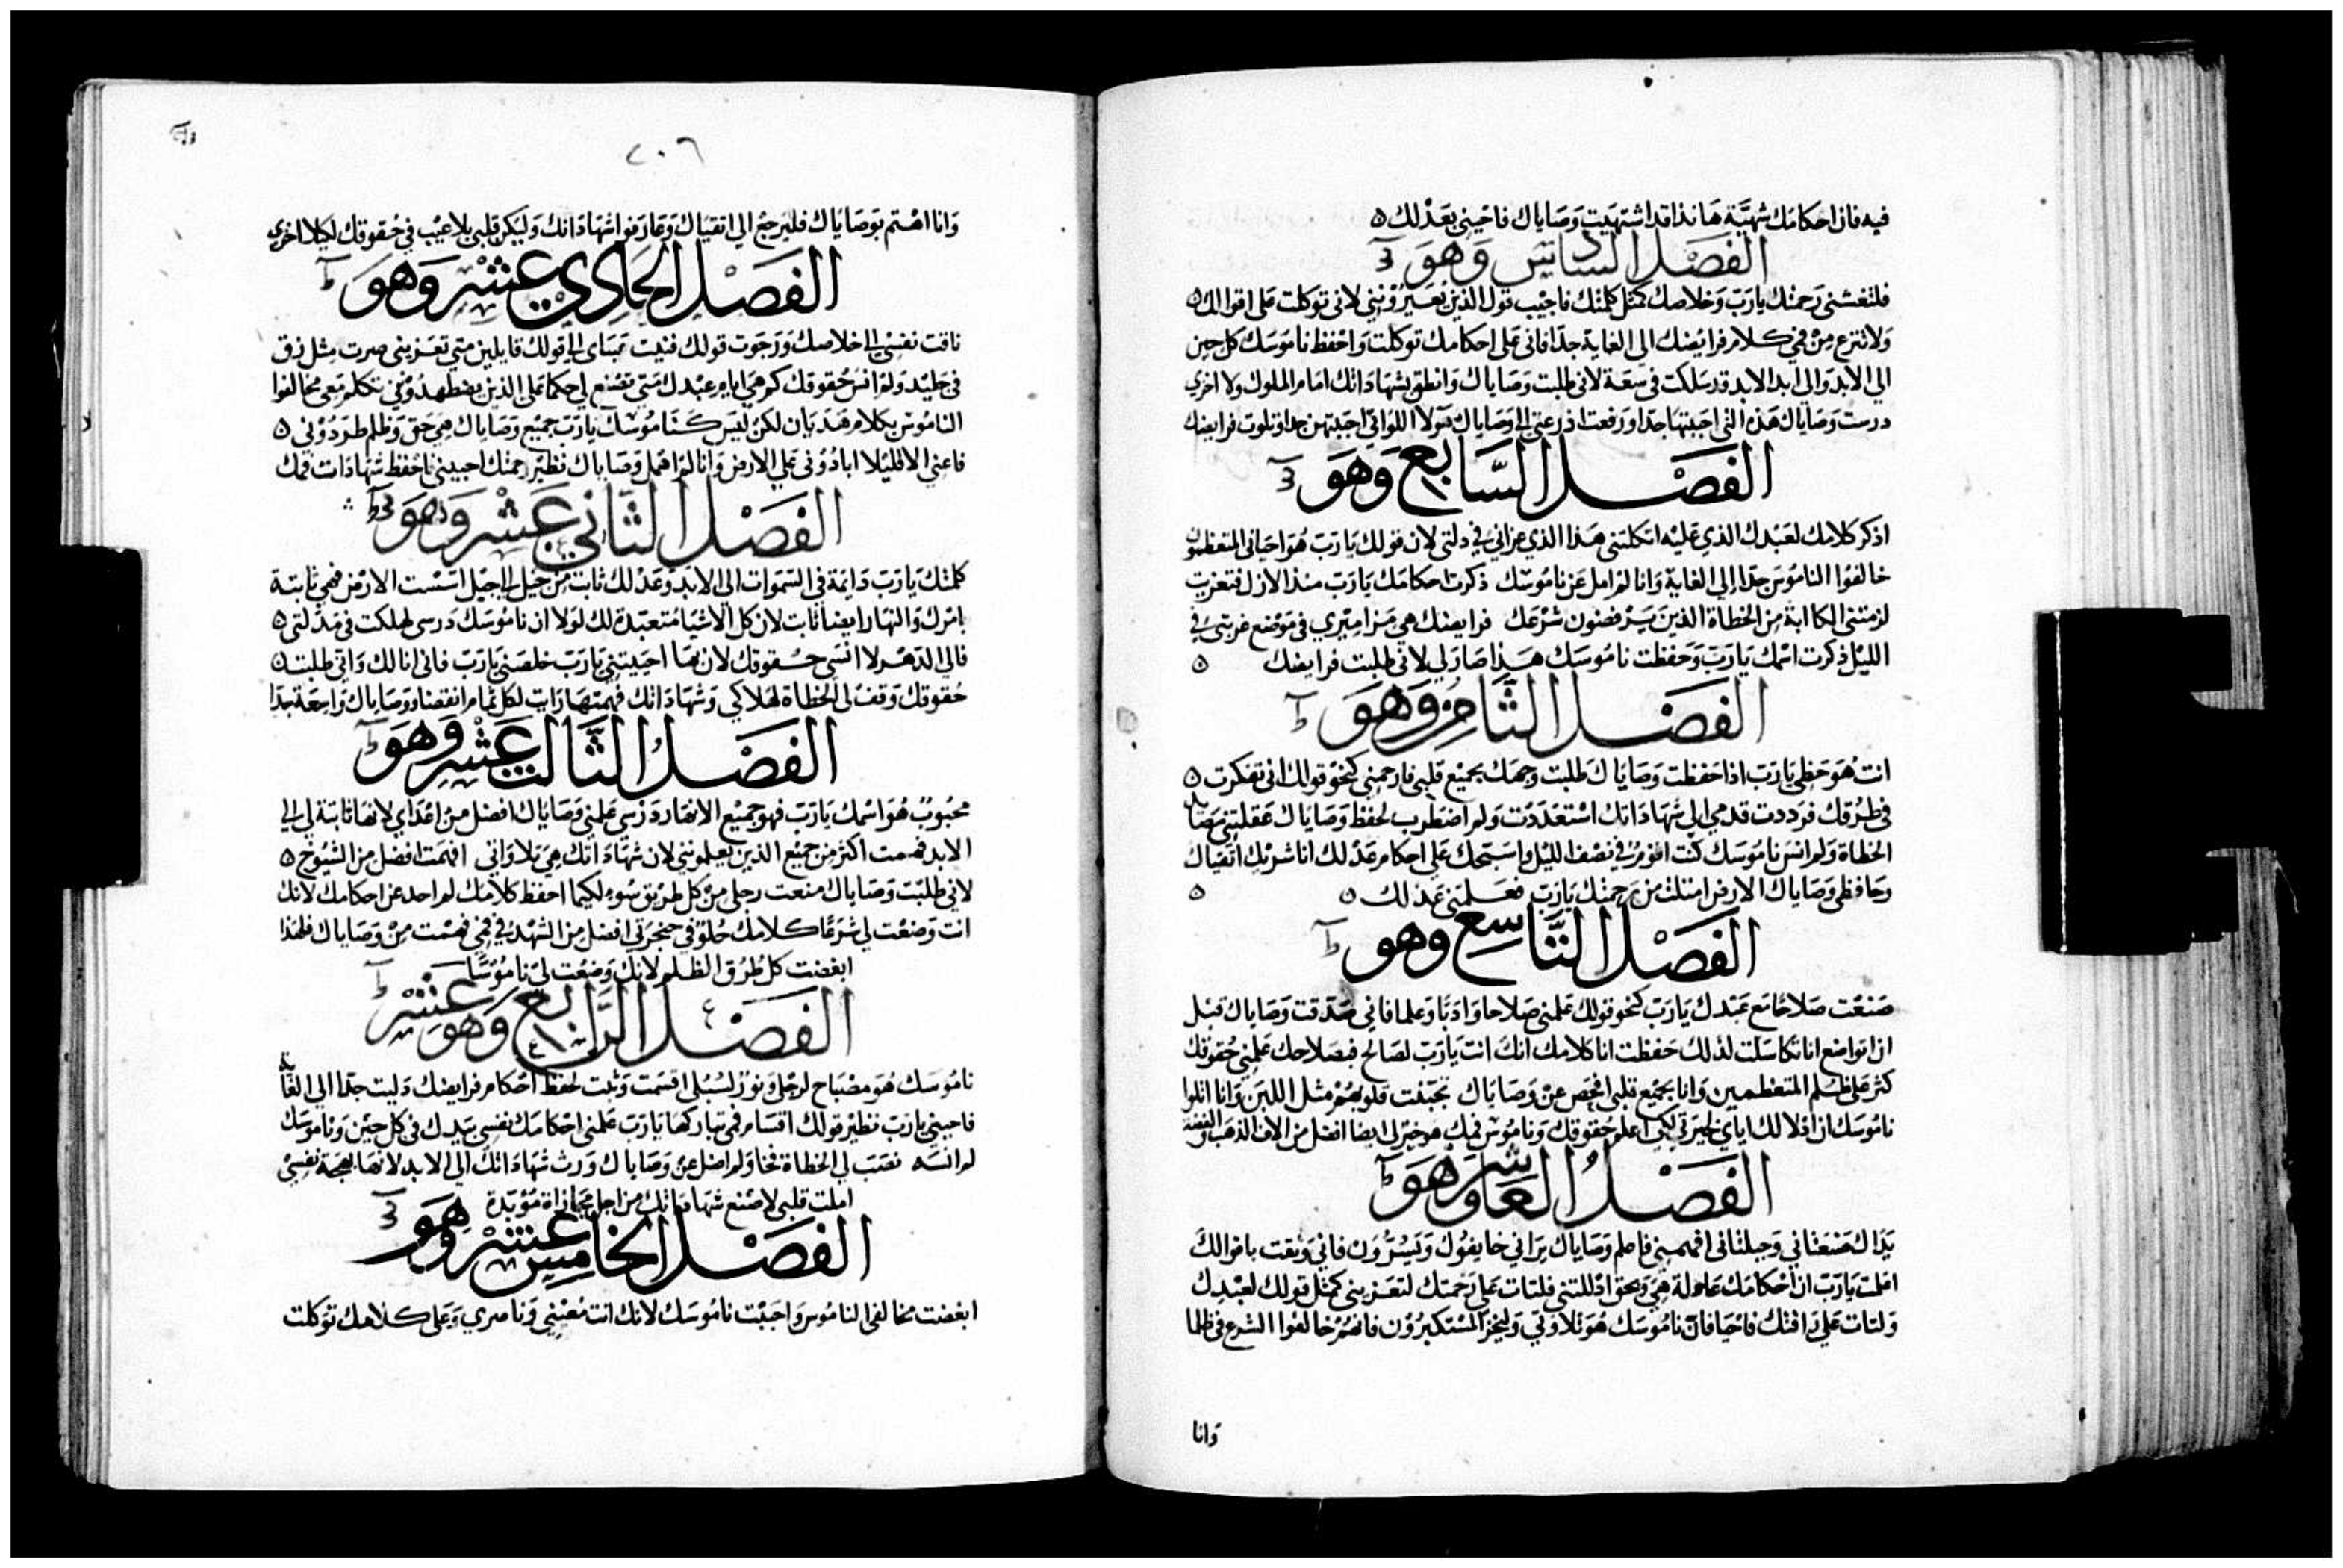 فيه فان احكامك شهية هانذا قد اشتهيت وصاياك فاحيني بعدلك
الفصل السادس وهو
فلتغشني رحمتك يارب وخلاصك كمثل كلمتك فاجيب قول الذين يعيرونني لاني توكلت على اقوالك
ولا تنزع من فمي كلام فرايضك الى الغاية جدا فاني على احكامك توكلت واحفظ ناموسك كل حين
الى الابد والى ابد الابد قد سلكت في سعة لاني طلبت وصاياك وانطق بشهاداتك امام الملوك ولا اخزي
درست وصاياك هذه التي احببتها جدا ورفعت اذرعتي الى وصاياك هولا اللواتي احببتهن جدا وتلوت فرايضك
الفصل السابع وهو
اذكر كلامك لعبدك الذي عليه اتكلتني هذا الذي عزاني في ذلتي لان قولك يارب هو احياني المتعظمون
خالفوا الناموس جدا الى الغاية وانا لم امل عن ناموسك ذكرت احكامك يارب منذ الازل فتعزيت
لزمتني الكابة من الخطاة الذين يرفضون شرعك فرايضك هي مزاميري في موضع غربتي في
الليل ذكرت اسمك يارب وحفظت ناموسك هذا صار لي لاني طلبت فرايضك
الفصل الثامن وهو
انت هو حظي يارب اذا حفظت وصاياك طلبت وجهك بجميع قلبي فارحمني كنحو قولك اني تفكرت
في طرقك فرددت قدمي الى شهاداتك استعددت ولم اضطرب لحفظ وصاياك عقلتني
الخطاة ولم انس ناموسك كنت اقوم في نصف الليل واسبحك على احكام عدلك انا شريك اتقياك
وحافظي وصاياك الارض امتلت من رحمتك يارب فعلمني عدلك
الفصل التاسع وهو
صنعت صلاحا مع عبدك يارب كنحو قولك علمني صلاحا وادبا وعلما فاني صدقت وصاياك قبل
ان اتواضع انا تكاسلت لذلك حفظت انا كلامك انك انت يارب لصالح فبصلاحك علمني حقوقك
كثر على ظلم المتعظمين وانا بجميع قلبي افحص عن وصاياك تجبنت قلوبهم مثل اللبن وانا اتلوا
ناموسك ان اذلالك اياي لخيرة لكي اعلم حقوقك وناموس فمك هو خير لي ايضا افضل من الاف الذهب والفضة
الفصل العاشر وهو
يداك صنعتاني وجبلتاني افهمني فاعلم وصاياك يراني خايفوك ويسرون فاني وثقت باقوالك
اعلمت يارب ان احكامك عادلة هي وبحق اذللتني فلتات علي رحمتك لتعزيني كمثل قولك لعبدك
ولتات علي رافتك فاحيا فان ناموسك هو تلاوتي وليخز المستكبرون فانهم خالفوا الشرع في ظلما
وانا
٢٠٦
وانا اهتم بوصاياك فليرجع الى اتقياك وعارفوا شهاداتك وليكن قلبي بلا عيب في حقوقك لكيلا اخزي
الفصل الحادي عشر وهو
تاقت نفسي الى خلاصك ورجوت قولك فنيت عيناي الى قولك قايلين متى تعزيني صرت مثل زق
في جليد ولم انس حقوقك كم هي ايام عبدك متى تصنع لي حكما على الذين يضطهدونني تكلم معي مخالفوا
الناموس بكلام هذيان لكن ليس كناموسك يارب جميع وصاياك هي حق وظلم طردوني
فاعني الا قليلا ابادوني على الارض وانا لم اهمل وصاياك نظير رحمتك احييني فاحفظ شهادات فمك
الفصل الثاني عشر وهو
كلمتك يارب دايمة في السموات الى الابد وعدلك ثابت من جيل الى جيل اسست الارض فهي ثابتة
بامرك والنهار ايضا ثابت لان كل الاشيا متعبدة لك لولا ان ناموسك درسي لهلكت في مذلتي
فالى الدهر لا انسى حقوقك لان بها احييتني يارب خلصني يارب فاني انا لك واني طلبت
حقوقك وقف لي الخطاة لهلاكي وشهاداتك فهمتها رايت لكل تمام انقضا ووصاياك واسعة جدا
الفصل الثالث عشر وهو
محبوب هو اسمك يارب فهو جميع الانهار درسي علمني وصاياك افضل من اعداي لانها ثابتة لي الى
الابد فهمت اكثر من جميع الذين يعلمونني لان شهاداتك هي تلاوتي افهمت افضل من الشيوخ
لاني طلبت وصاياك منعت رجلي من كل طريق سوء لكيما احفظ كلامك لم احد عن احكامك لانك
انت وضعت لي شرعا كلامك حلو في حنجرتي افضل من الشهد في فمي فهمت من وصاياك فلهذا
ابغضت كل طرق الظلم لانك وضعت لي ناموسا
الفصل الرابع عشر وهو
ناموسك هو مصباح لرجلي ونور لسبلي اقسمت وثبت لحفظ احكام فرايضك ذليت جدا الى الغاية
فاحيني يارب نظير قولك اقسام فمي تباركها يارب علمني احكامك نفسي بيدك في كل حين وناموسك
لم انسه نصب لي الخطاة فخا ولم اضل عن وصاياك ورثت شهاداتك الى الابد لانها بهجة نفسي
املت قلبي لاصنع شهاداتك من اجل مجازاة مؤبدة
الفصل الخامس عشر وهو
ابغضت مخالفي الناموس واحببت ناموسك لانك انت معيني وناصري وعلى كلامك توكلت